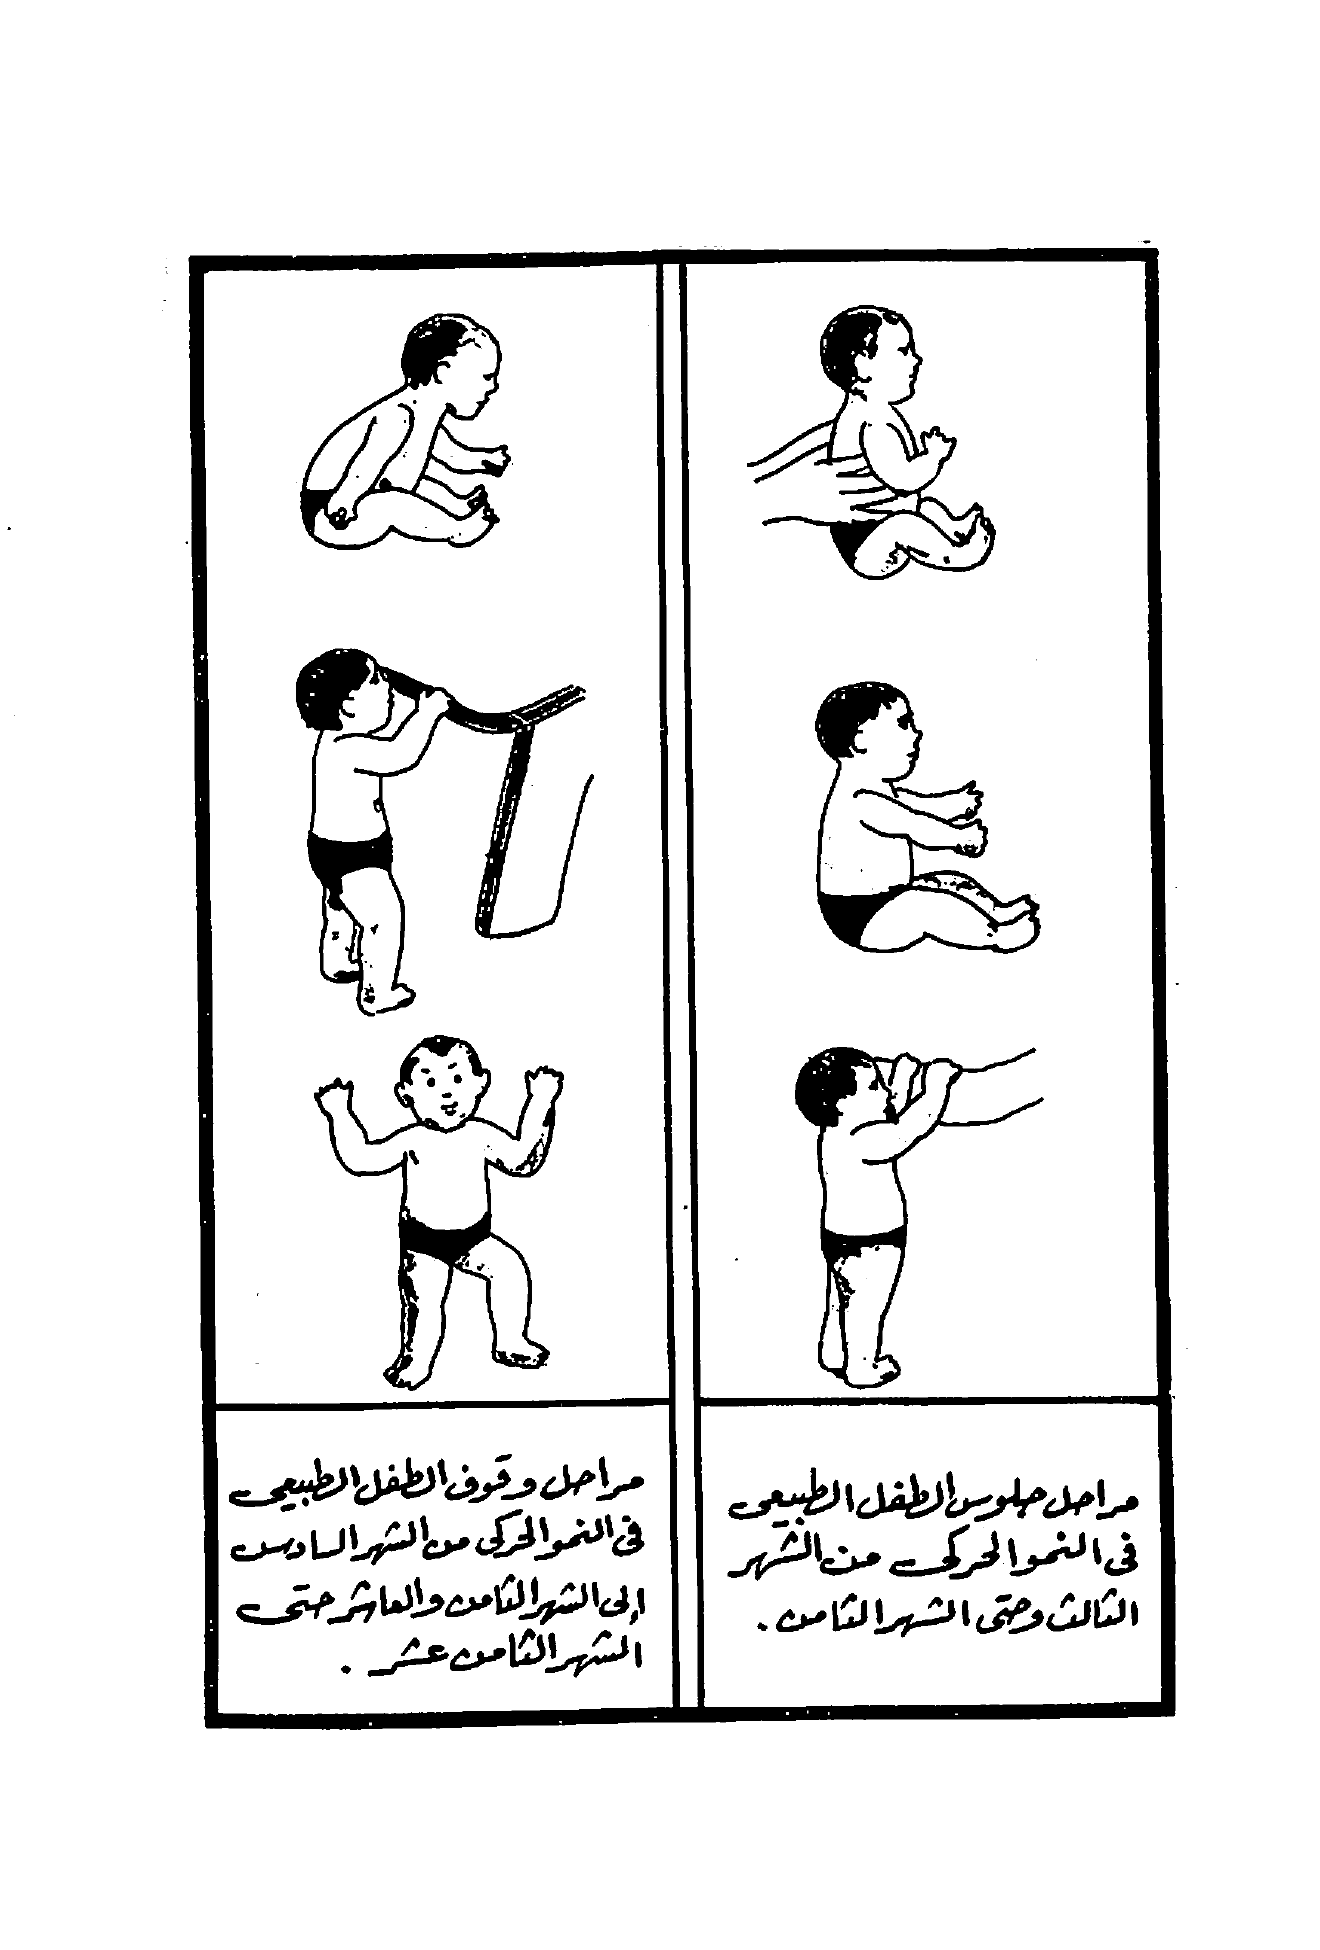 مراحل جلوس الطفل الطبيعى
فى النمو الحركى من الشهر
الثالث وحتى الشهر الثامن .
مراحل وقوف الطفل الطبيعى
فى النمو الحركى من الشهر السادس
إلى الشهر الثامن والعاشر حتى
الشهر الثامن عشر .